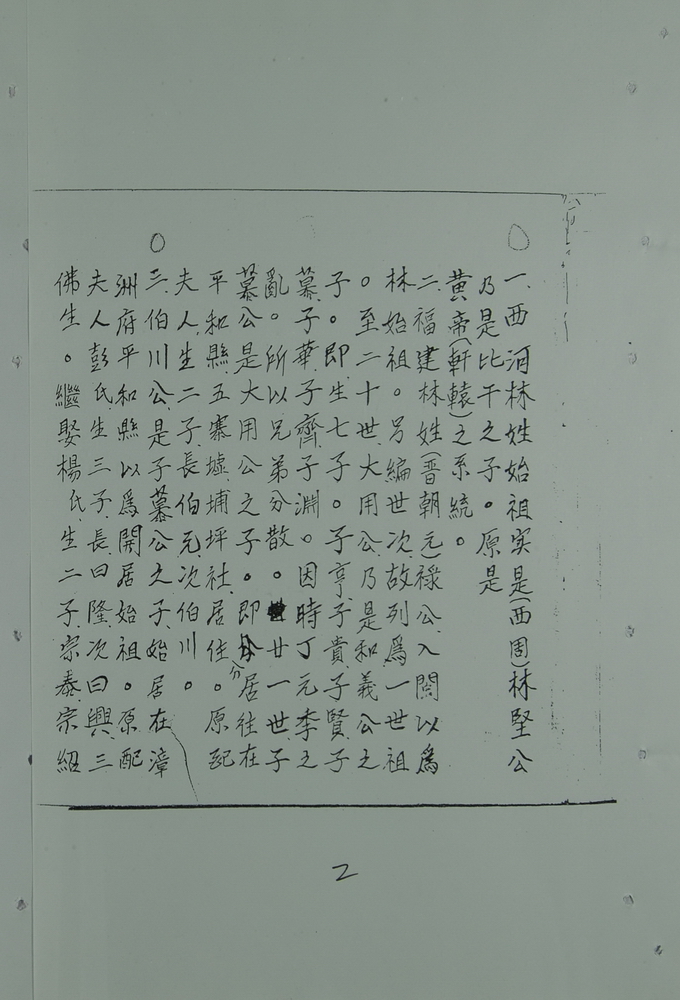 一、西河林姓始祖实是(西周)林堅公
乃是比干之子。原是
黄帝(軒轅)之系統。
二、福建林姓(晋朝元)祿公入閩以爲
林始祖。另編世次故列爲一世祖
。至二十世大用公乃是和義公之
子。即生七子。子亨子貴子賢子
慕子華子齊子淵。因時丁元季之
亂。所以兄弟分散。廿一世子
慕公是大用公之子。即分居往在
平和縣五寨墟埔坪社居住。原配
夫人生二子長伯元次伯川。
三、伯川公是子慕公之子始居在漳
洲府平和縣以爲開居始祖。原配
夫人彭氏生三子長曰隆次曰興三
佛生。繼娶楊氏生二子宗泰宗紹
2